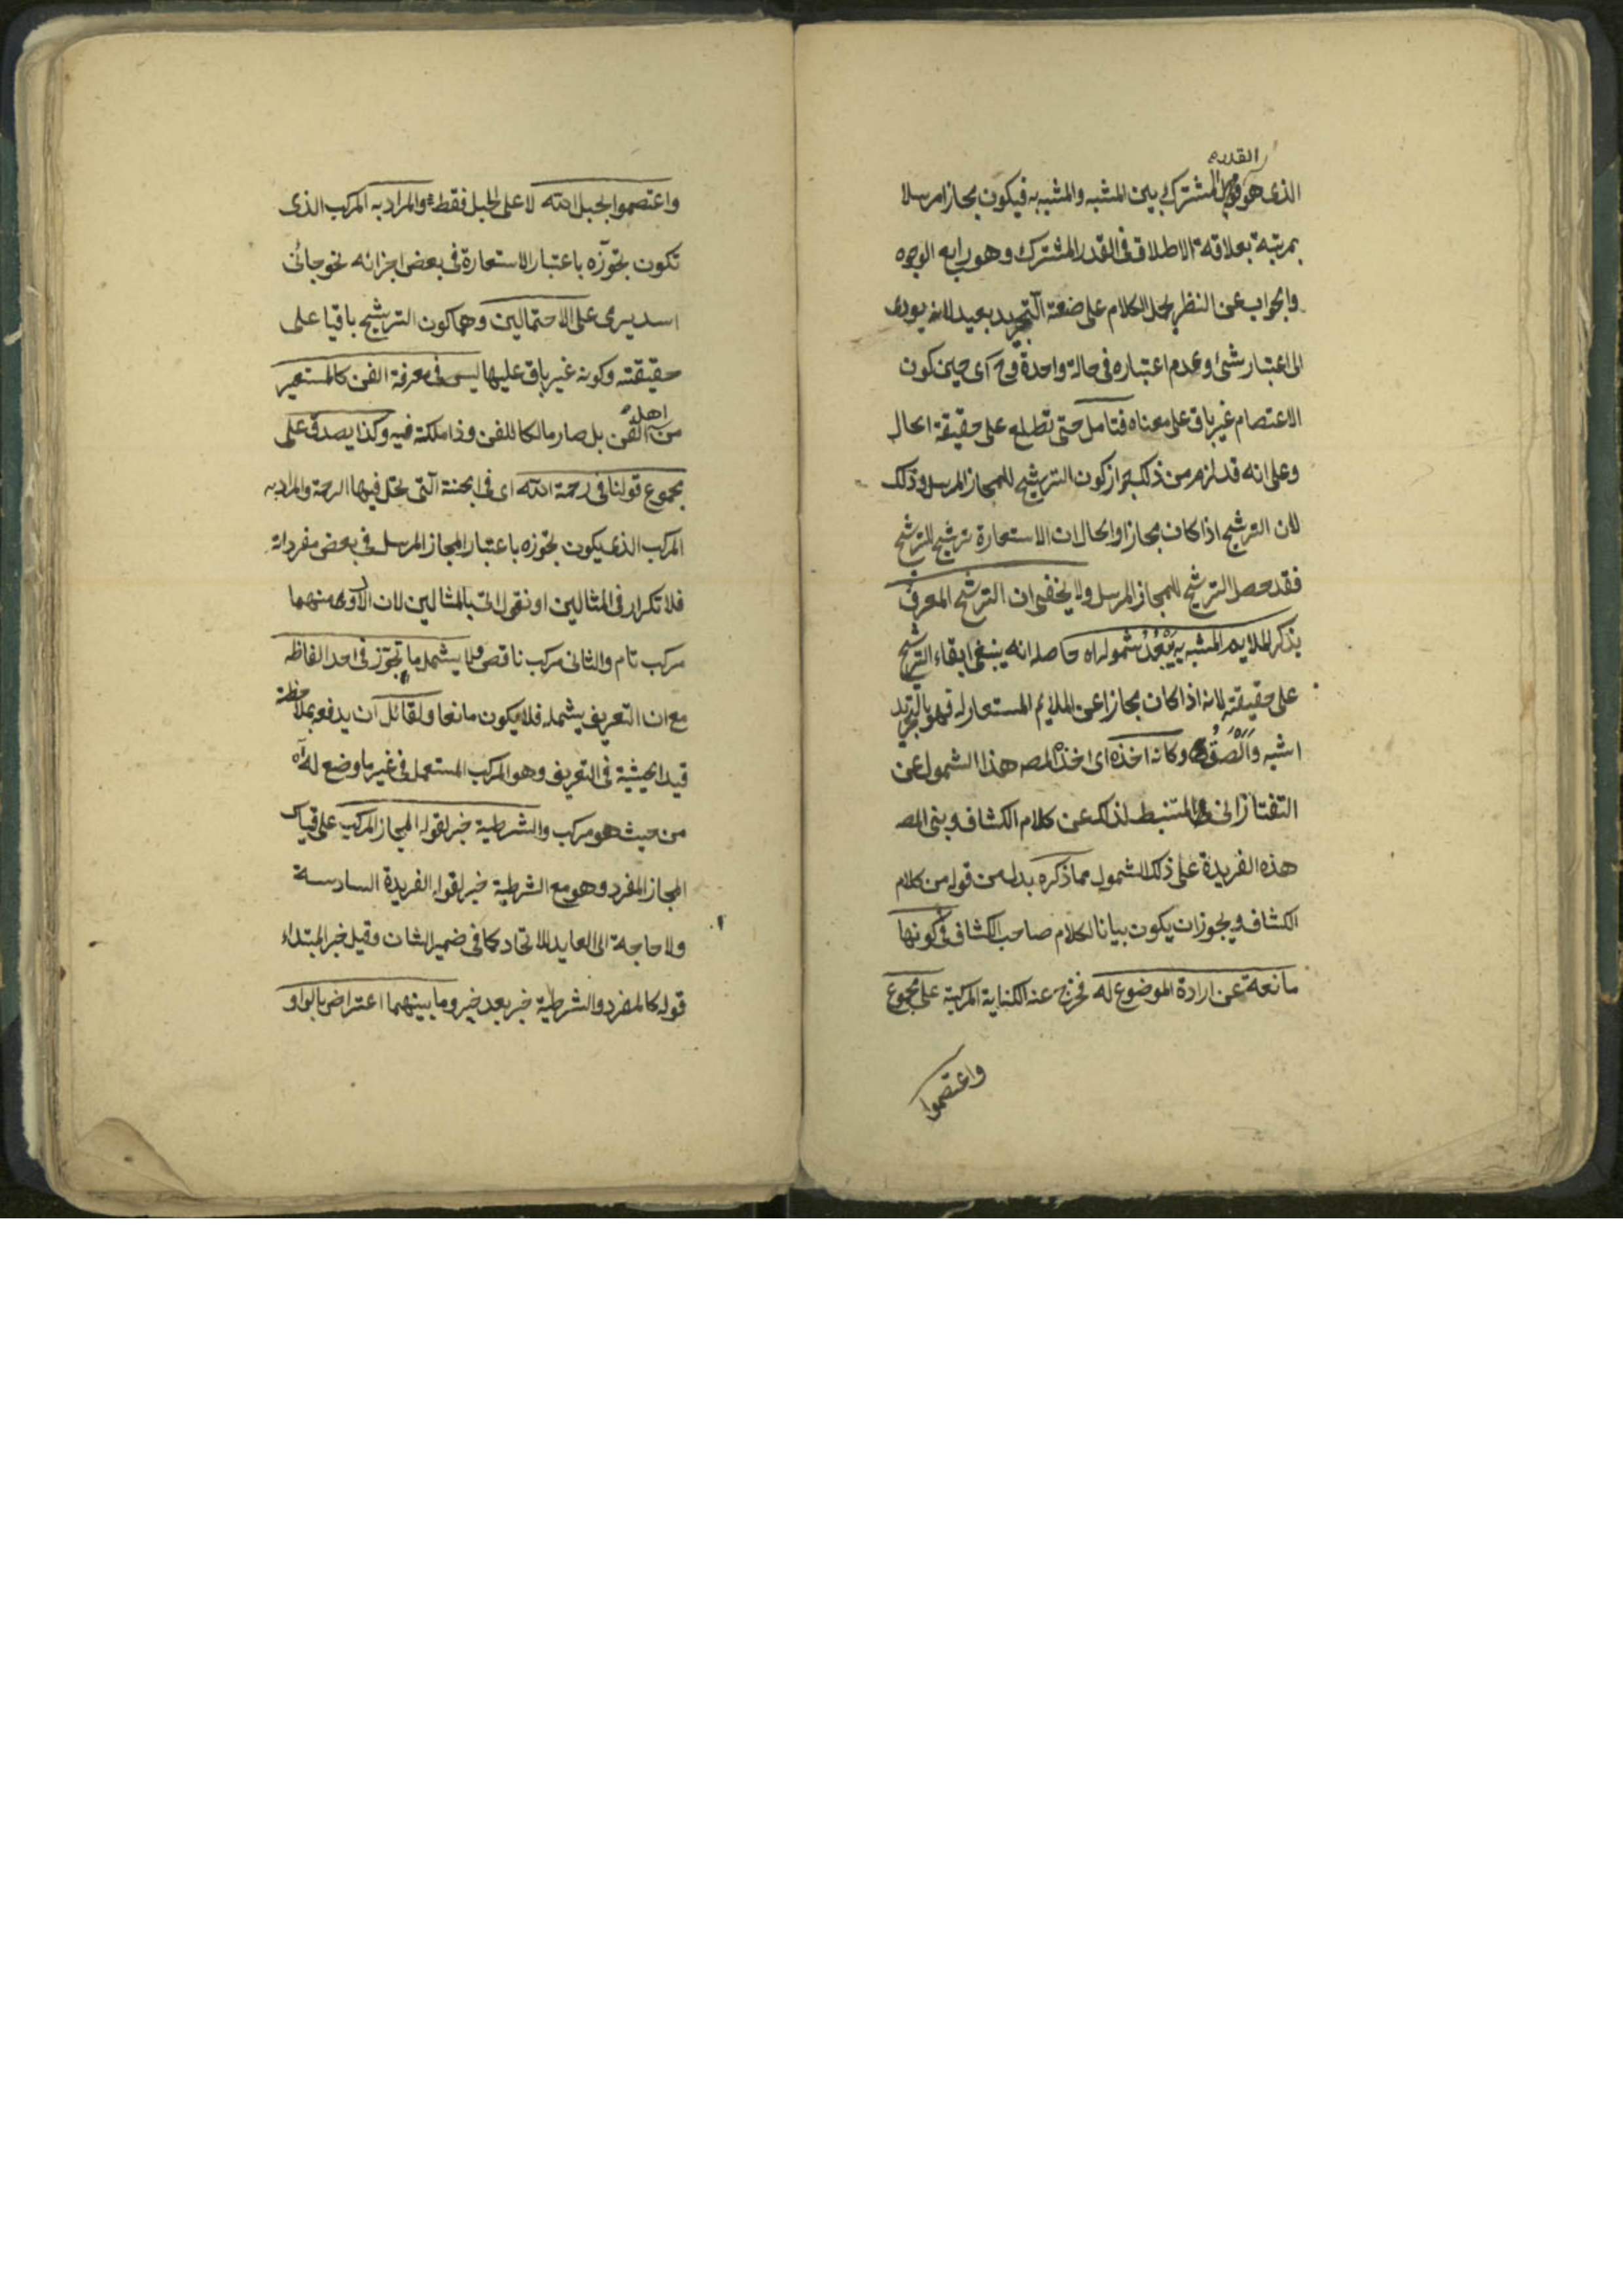 القدر
الذى هو المشترك بين المشبه والمشبه به فيكون مجازا مرسلا
بمرتبة بعلاقة الاطلاق فى القدر المشترك وهو رابع الوجوه
والجواب عن النظر بحمل الكلام على صنعة التجريد بعيد لانه يودى
الى اعتبار شئ وعدم اعتباره فى حالة واحدة وح آى حين كون
الاعتصام غير باق على معناه فتامل حتى تطلع على حقيقة الحال
وعلى انه قد لزم من ذلك جواز كون الترشيح للمجاز المرسل وذلك
لان الترشيح اذا كان مجازا والحال ان الاستعارة ترشيح للترشيح
فقد حصل الترشيح للمجاز المرسل ولا يخفى ان الترشيح المعرف
بذكر الملايم المشبه به يَبْعُدُ شموله اه حاصله انه ينبغى ابقاء الترشيح
على حقيقته لانه اذا كان مجازا عن الملايم المستعار له فهو بالتجريد
اشبه والصق وكانه اخذه اى اخذ المصـ هذا الشمول عن
التفتازانى المستنبط لذلك عن كلام الكشاف وبنى المصـ
هذه الفريدة على ذلك الشمول مما ذكره بدل من قوله من كلام
الكشاف ويجوز ان يكون بيانا لكلام صاحب الكشاف فى كونها
مانعة عن ارادة الموضوع له فخرج عنه الكناية المركبة على مجموع
واعتصموا
واعتصموا بحبل الله لا على الحبل فقط والمراد به المركب الذى
تكون تجوّزه باعتبار الاستعارة فى بعض اجزائه نحو جائنى
اسد يرمى على الاحتمالين وهما كون الترشيح باقيا على
حقيقته وكونه غير باق عليها ليس فى معرفة الفن كالمستعير
من اهله الفن بل صار مالكا للفن وذا ملكة فيه وكذا يصدق على
مجموع قولنا فى رحمة الله اى فى الجنة الّتى تحل فيها الرحمة والمراد به
المركب الذى يكون تجوّزه باعتبار المجاز المرسل فى بعض مفرداته
فلا تكرار فى المثالين او نقول اتى بالمثالين لان الاولى منهما
مركب تام والثانى مركب ناقص ولا يشمل ما تجوّز فى احد الفاظه
مع ان التعريف يشمله فلا يكون مانعا ولقائل ان يدفعه بملاحظة
قيد الحيثية فى التعريف وهو المركب المستعمل فى غير ما وضع له اه
من حيث هو مركب والشرطية خبر لقوله المجاز المركب على قياس
المجاز المفرد وهو مع الشرطية خبر لقوله الفريدة السادسة
ولا حاجة الى العايد للاتحاد كما فى ضمير الشان وقيل خبر المبتداء
قوله كالمفرد والشرطية خبر بعد خبر وما بينهما اعتراض بالواو